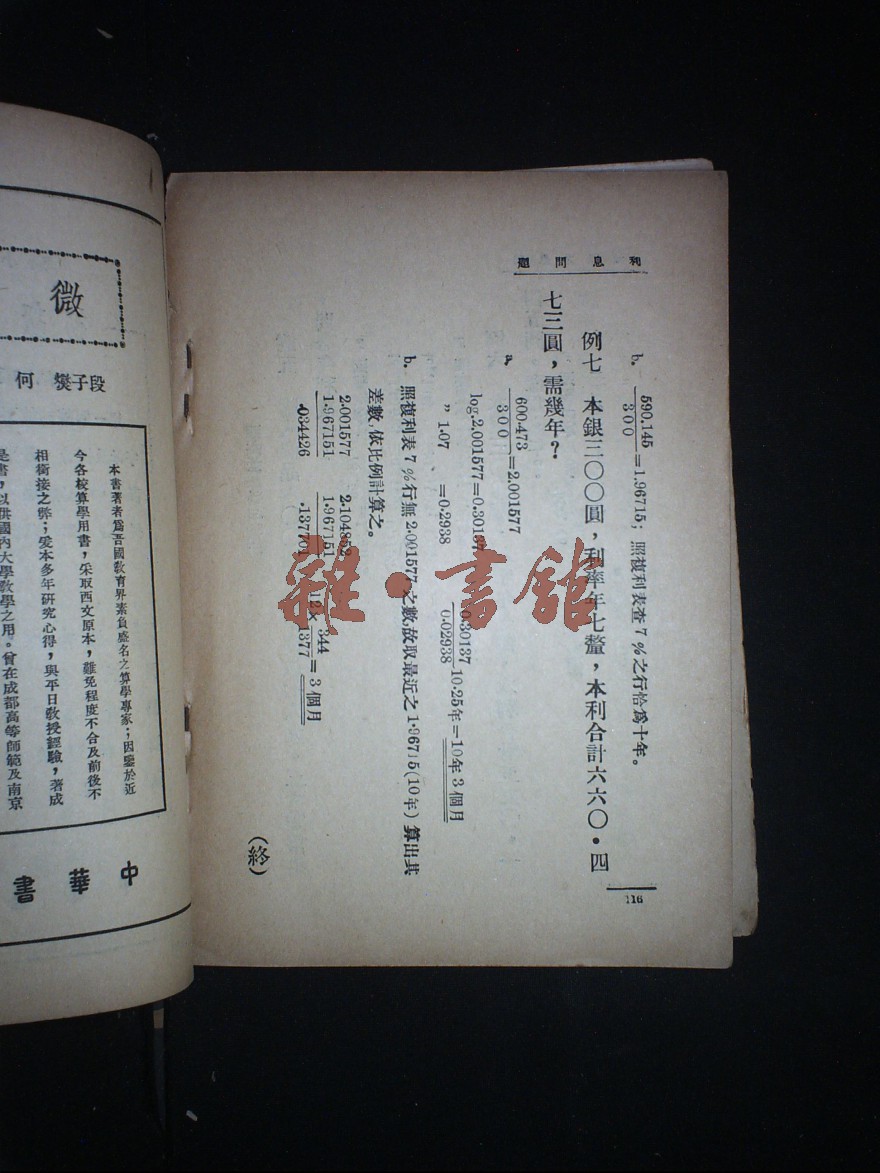 利息問題
b. 590.145/300=1.96715; 照複利表查7%之行恰爲十年。
例七 本銀三〇〇圓,利率年七釐,本利合計六六〇·四
七三圓,需幾年?
a. 600.473/300=2.001577
log.2.001577=0.30137
〃 1.07 =0.2938
0.30137/0.02938 10.25年=10年3個月
b. 照複利表7%行無2.001577之數,故取最近之1.96715(10年)算出其
差數,依比例計算之。
2.001577 2.104852
1.967151 1.967151 12×344/1377=3個月
.034426 .137701
(終)
116
微
何 段子燮
本書著者爲吾國敎育界素負盛名之算學專家;因鑒於近
今各校算學用書,采取西文原本,難免程度不合及前後不
相銜接之弊;爰本多年研究心得,與平日敎授經驗,著成
是書,以供國內大學敎學之用。曾在成都高等師範及南京
中華書
雜·書館